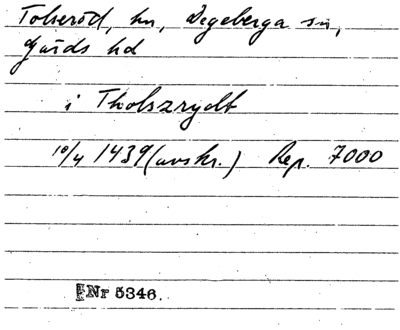 Tolseröd, hn, Degeberga sn,
Gärds hd
i Tholszrydt
10/4 1439 (avskr.) Rep. 7000
Nr 5346.